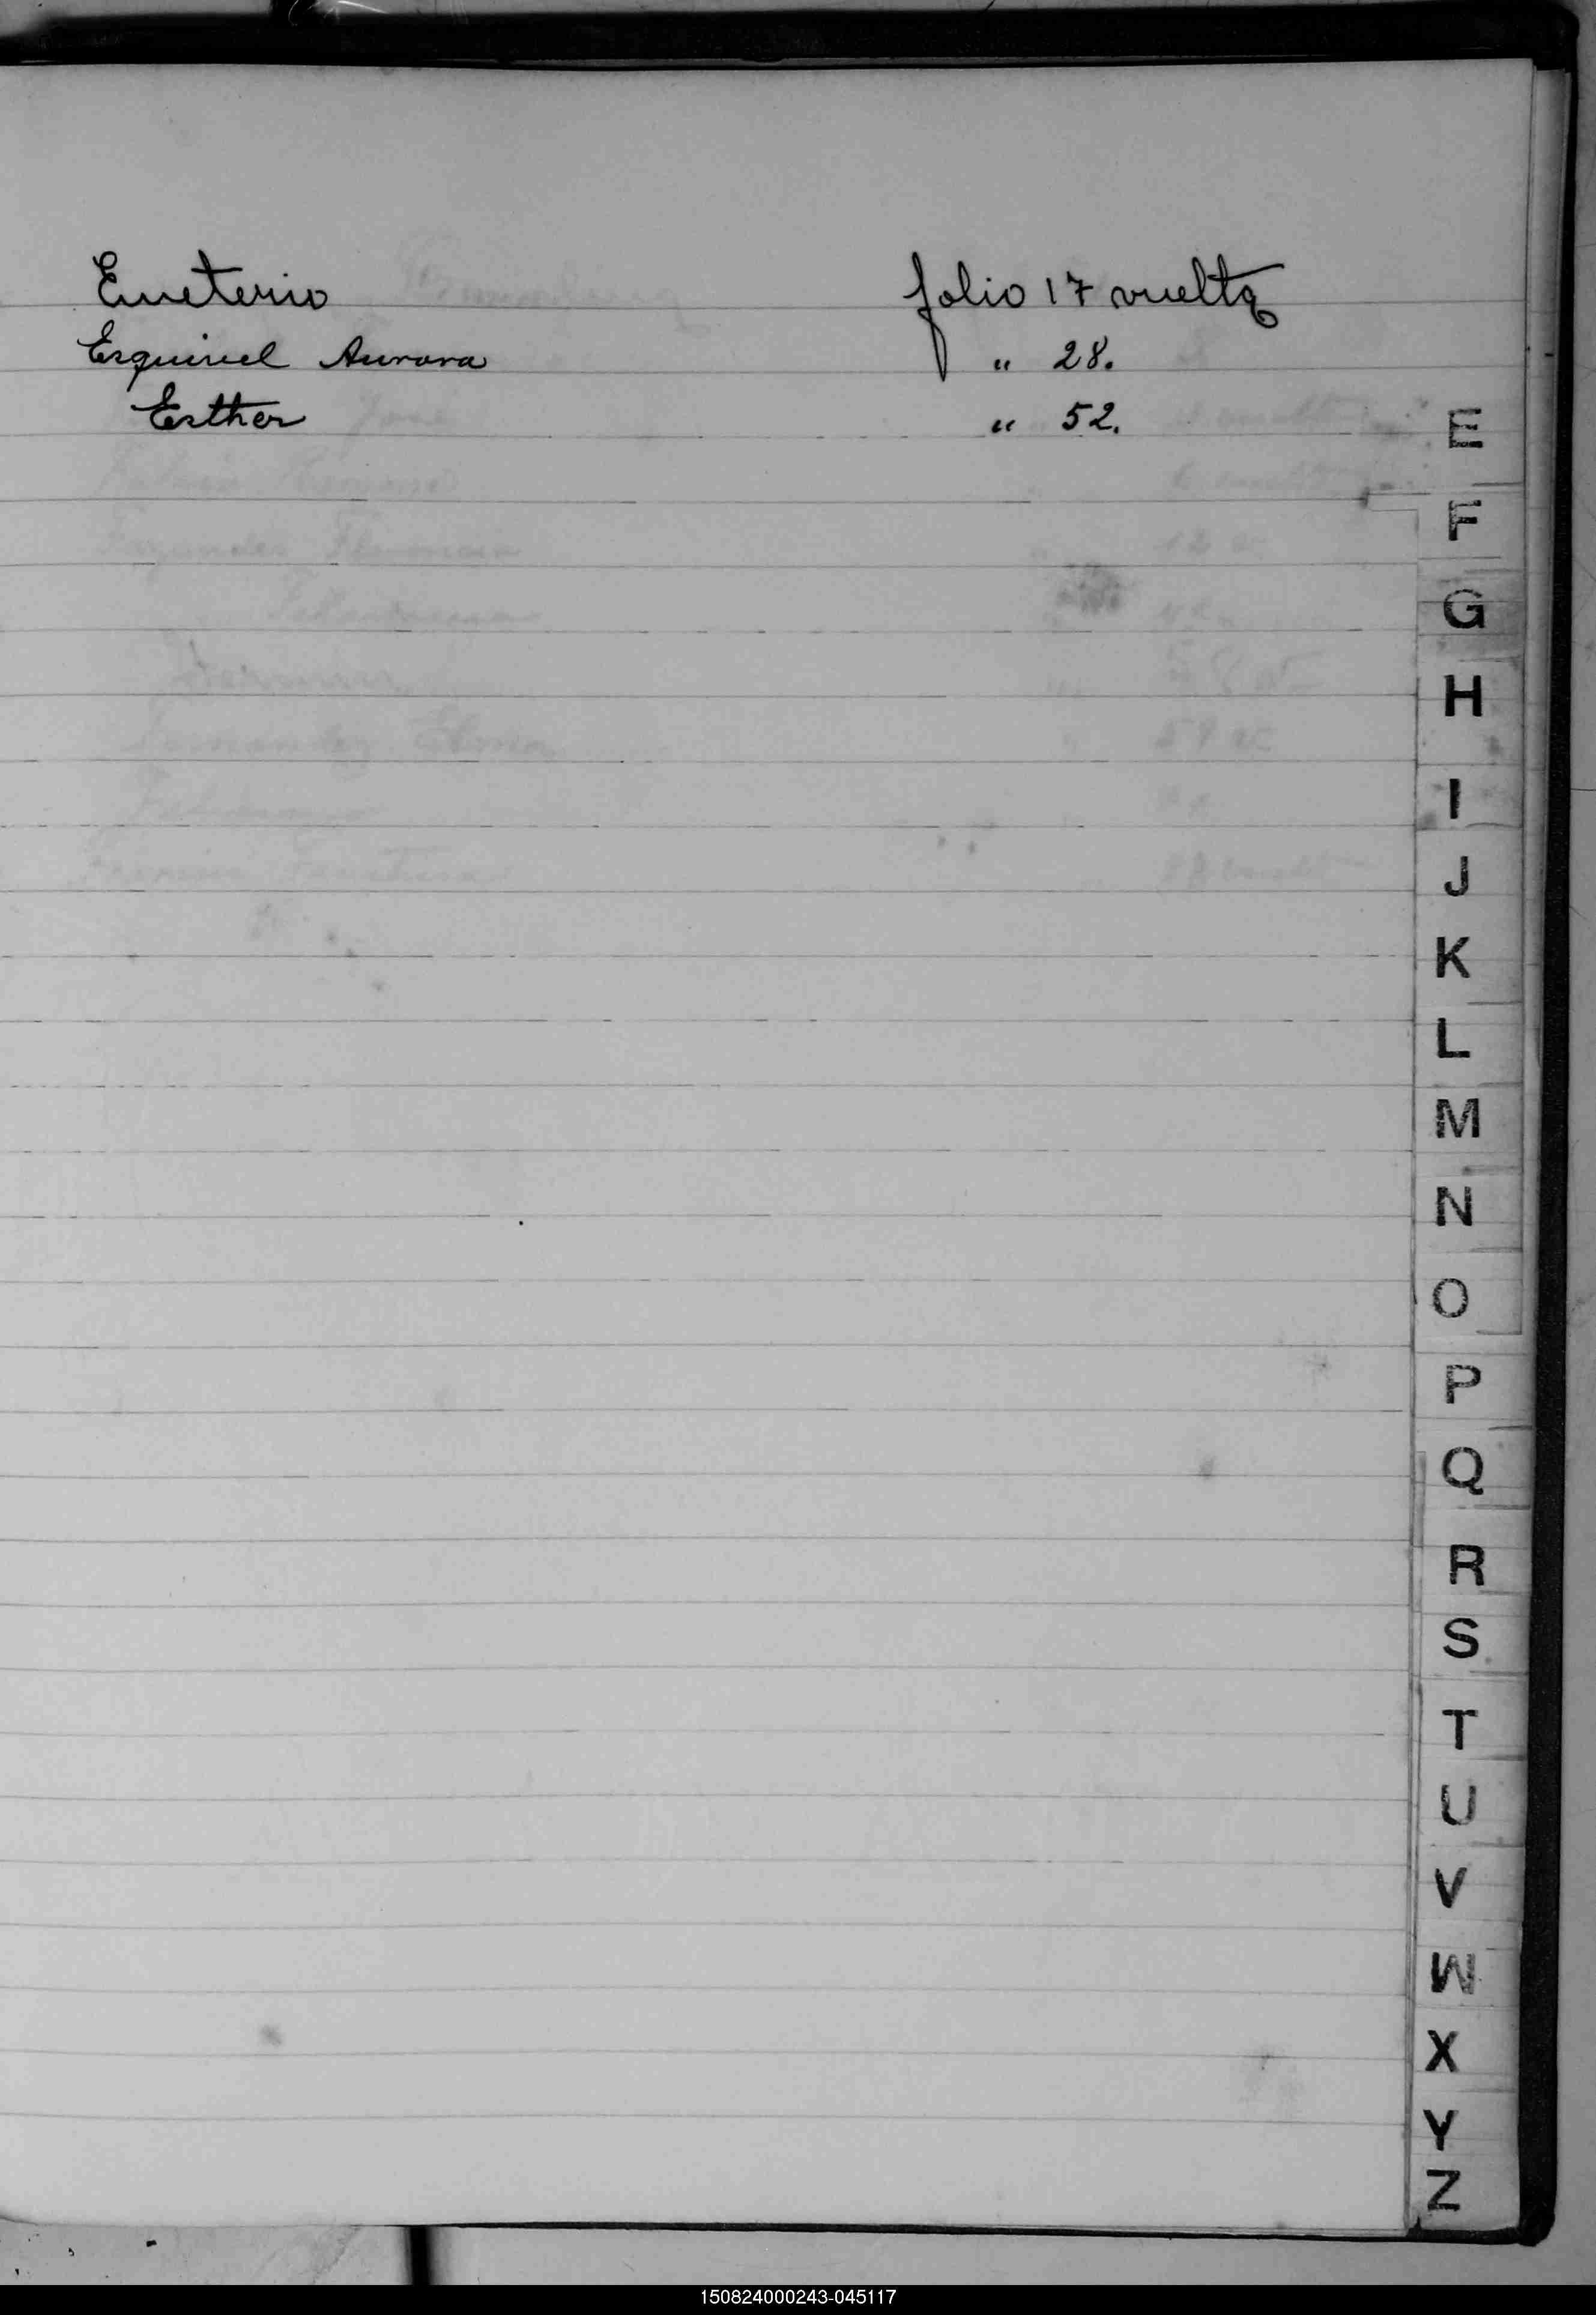 Eueterio folio 17 vuelta
Esquivel Aurora " 28.
Esther " 52.
E
F
G
H
I
J
K
L
M
N
O
P
Q
R
S
T
U
V
W
X
Y
Z
150824000243-045117